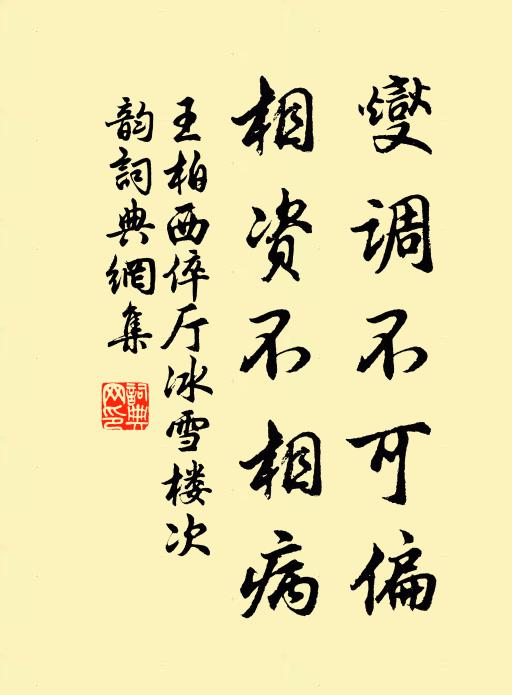 燮调不可偏
相资不相病
王柏西倅厅冰雪楼次
韵词典網集
詞典網印